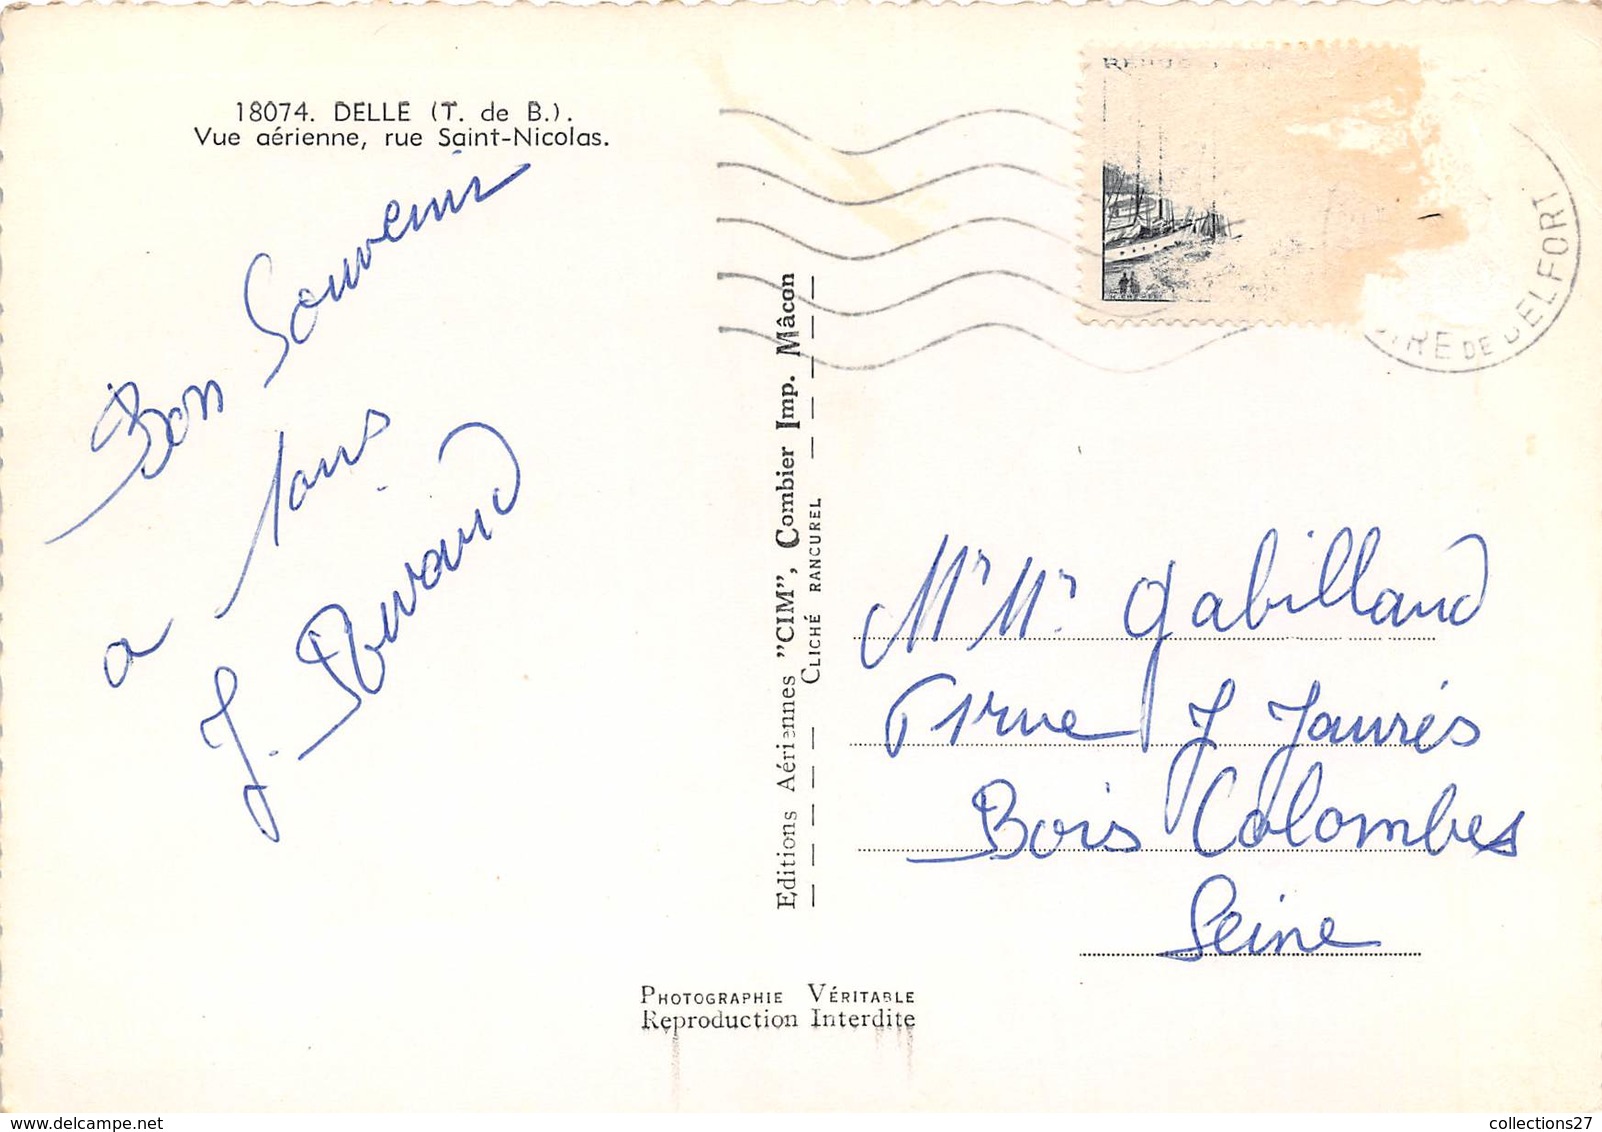 18074. DELLE (T. de B.).
Vue aérienne, rue Saint-Nicolas.
Bon Souvenir
a tous
J.
Editions Aériennes "CIM", Combier Imp. Mâcon
CLICHÉ RANCUREL
DE BELFORT
Mr Mr. Gabilland
rue J Jaurés
Bois Colombes
Seine
PHOTOGRAPHIE VÉRITABLE
Reproduction Interdite
www.delcampe.net
collections27